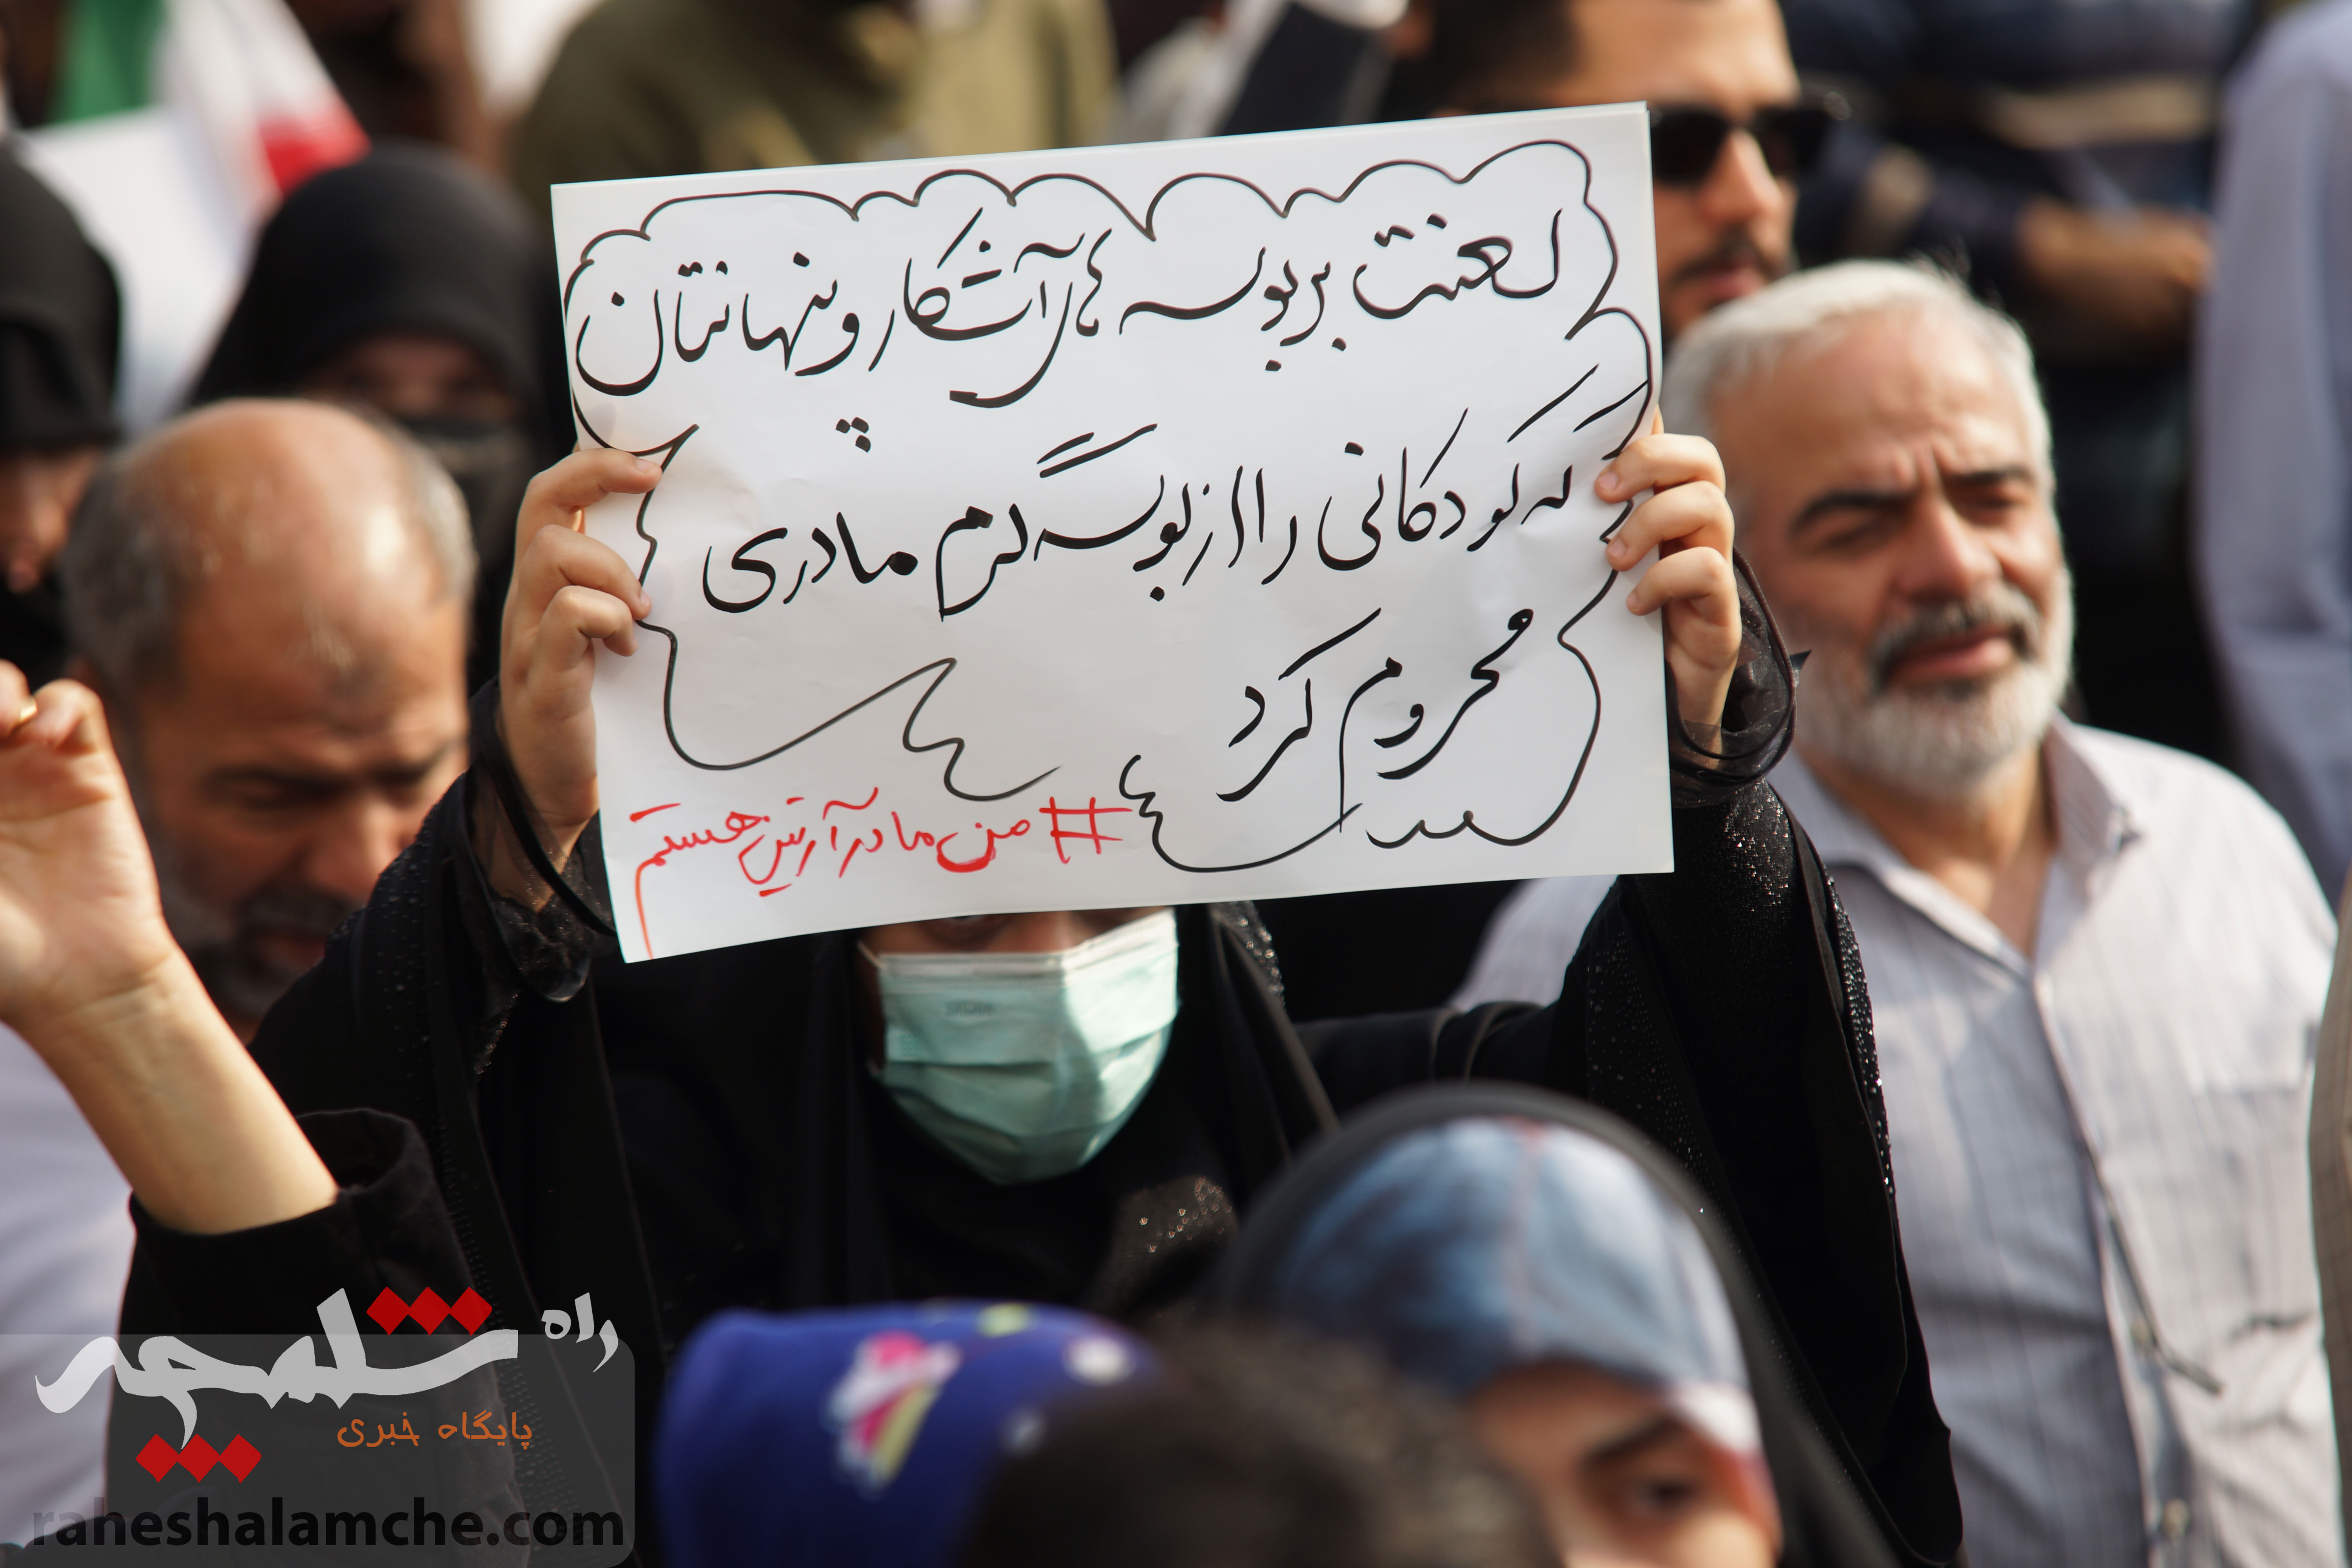 لعنت بر بوسه های آشکار و پنهانتان
که کودکانی را از بوسه گرم مادری
محروم کرد
#من مادر آرتین هستم
راه شلمچه
پایگاه خبری
raheshalamche.com